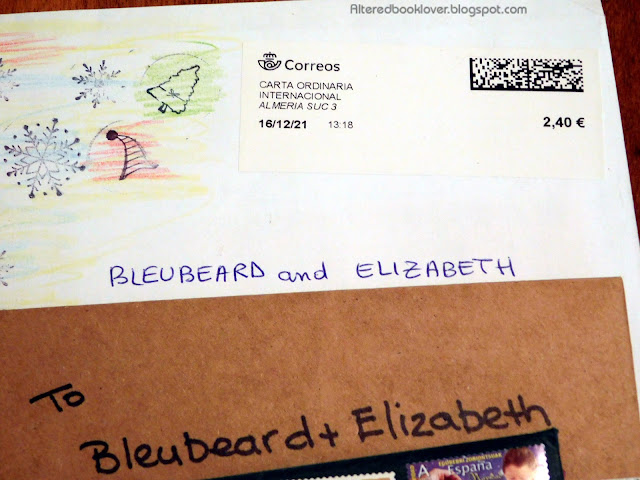 Alteredbooklover.blogspot.com
Correos
CARTA ORDINARIA
INTERNACIONAL
ALMERIA SUC 3
16/12/21 13:18
2,40 €
BLEUBEARD and ELIZABETH
To
Bleubeard + Elizabeth
A España